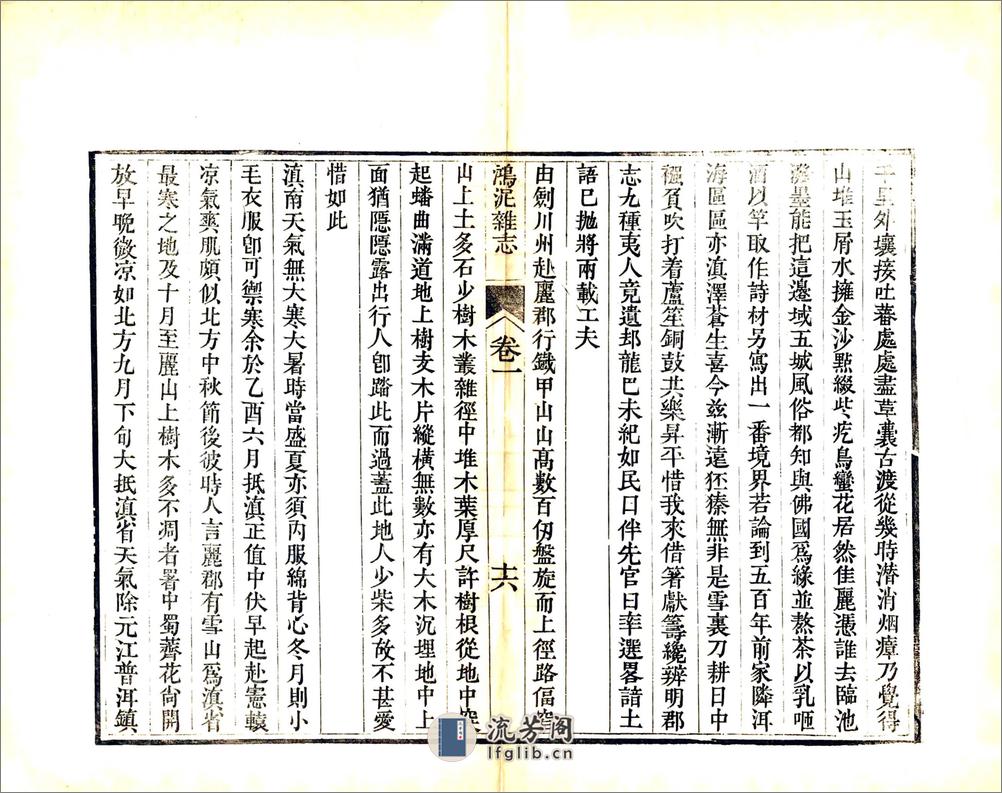 千里外壤接吐蕃處處盡草囊古渡從幾時潛消烟瘴乃覺得
山堆玉屑水擁金沙點綴些疙鳥蠻花居然佳麗憑誰去臨池
潑墨能把這邊域五城風俗都知與佛國爲緣並熬茶以乳咂
酒以竿取作詩材另寫出一番境界若論到五百年前家隣洱
海區區亦滇澤蒼生喜今兹漸遠狉獉無非是雪裏刀耕日中
襁負吹打着蘆笙銅鼓共樂昇平惜我來借箸獻籌纔辨明郡
志九種夷人竟遺却龍巴未紀如民口伴先官日率選畧諳土
語已拋將兩載工夫
由劍川州赴麗郡行鐵甲山山高數百仞盤旋而上徑路偪窄
鴻泥雜志 卷一 十六
山上土多石少樹木叢雜徑中堆木葉厚尺許樹根從地中突
起蟠曲滿道地上樹亥木片縱橫無數亦有大木沉埋地中上
面猶隱隱露出行人卽踏此而過蓋此地人少柴多故不甚愛
惜如此
滇南天氣無大寒大暑時當盛夏亦須內服綿背心冬月則小
毛衣服卽可禦寒余於乙酉六月抵滇正值中伏早起赴憲轅
凉氣爽肌頗似北方中秋節後彼時人言麗郡有雪山爲滇省
最寒之地及十月至麗山上樹木多不凋者署中蜀薺花尙開
放早晚微凉如北方九月下旬大抵滇省天氣除元江普洱鎮
流芳閣
lfglib.cn